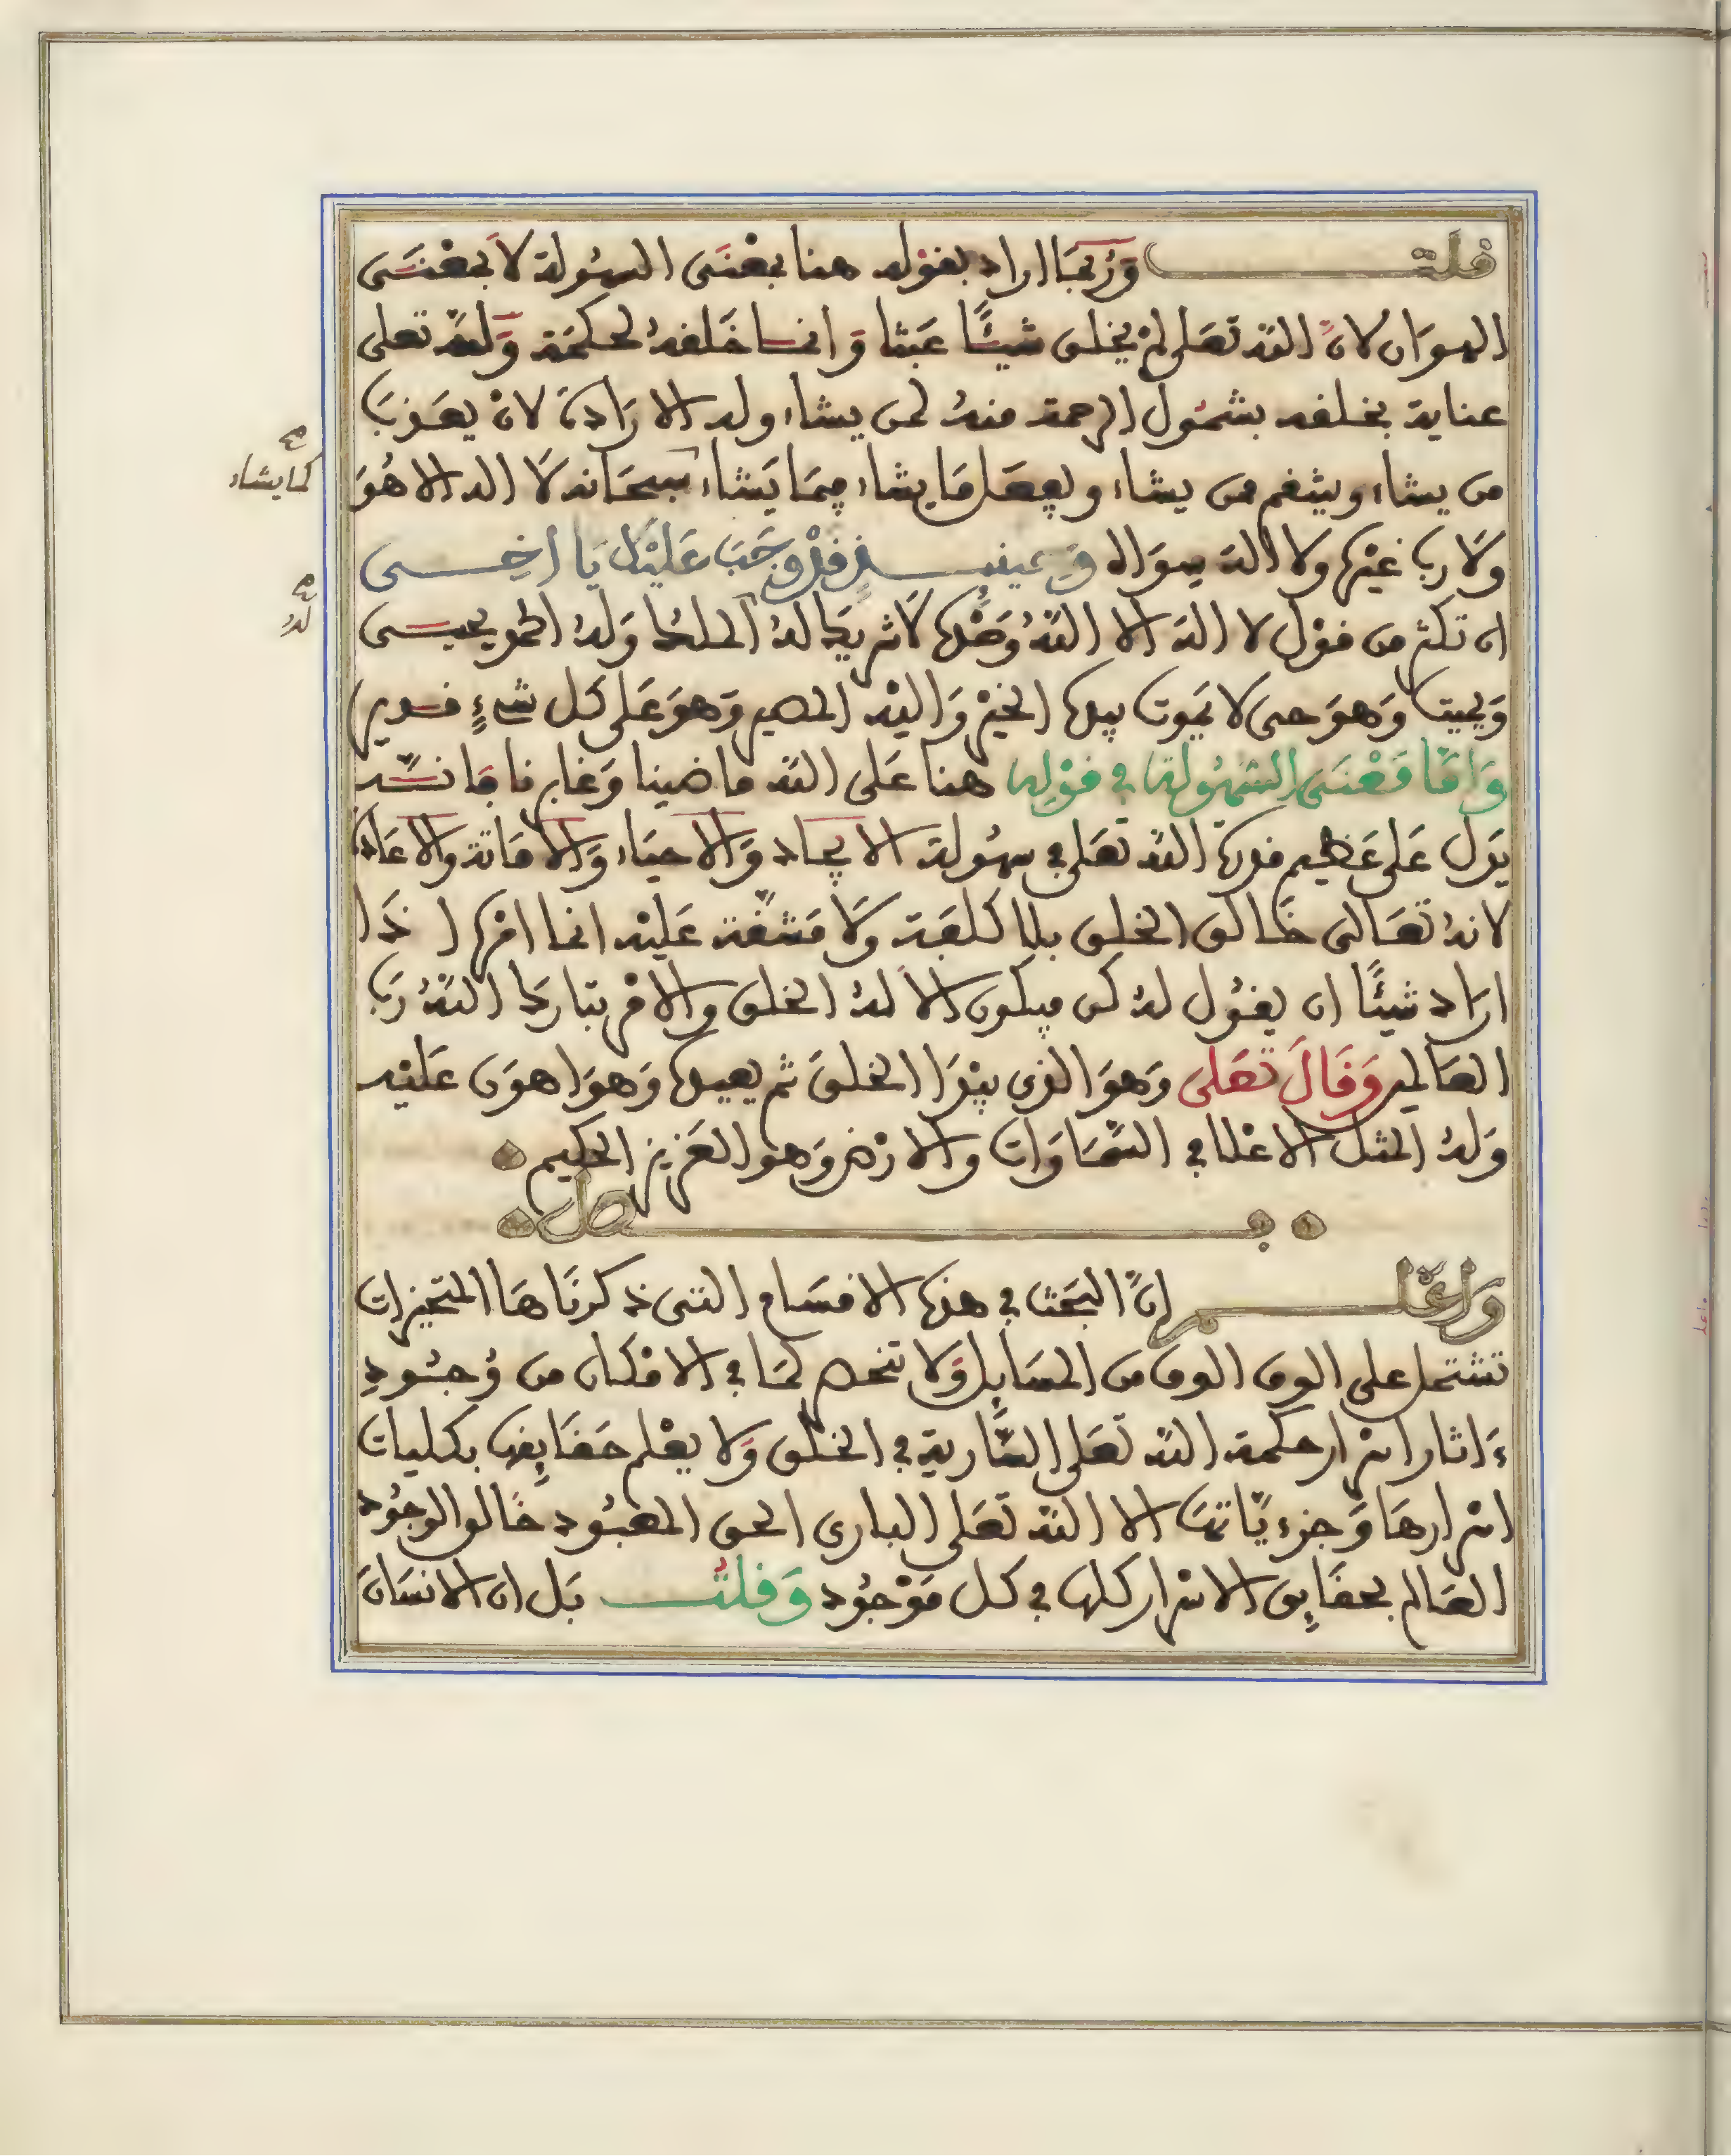 قلت وَرُبمَا اراد بقوْله هنا بمعْنَى السهُولة لَا بمعْنَى
الهوَان لانَّ اللّه تعَلى لمْ يخلق شيْئًا عبَثا وَانما خَلقهُ لحكمَة وَللّه تعلى
عناية بخلقه بشمُول الرحمة منهُ لمن يشاء وله الارَادة لانْ يعَذب
من يشاء وينتقم ممن يشاء ويفعَل مَا يشاء فيمَا يَشاء سبحَانه لَا اله الا هُوَ
كما يشاء
وَلَا رب غيْره ولا اله سِوَاه وَحينئذٍ فقدْ وجَبَ عَليْك يَا اخِى
ان تكثر من قوْل لا اله الا اللّهُ وَحْدَه لَا شريك لهُ الملك وَلهُ الحمد يحيى
لهُ
وَيميت وَهوَ حى لا يَموت بيده الخيْر وَاليْه المصير وَهوَ عَلى كل شىءٍ قدير
وَامَّا مَعْنَى السّهُولة في قوْله هنا عَلى اللّه ماضينا وَغابرنا فانّه
يَدل عَلى عَظيم قدرة اللّه تعَلى في سهُولة الايجاد وَالاحيَاء وَالامَاتة وَالاعَادة
لانهُ تعَالى خَالق الخلق بلا كلفَة وَلَا مَشقّة عَليْه انما امْره اذَا
ارَاد شيْئًا ان يقوُل لهُ كن فيكون الَا لهُ الخلق وَالامْر تبَارك اللّهُ رَب
العَالمين وَقَالَ تعَلى وَهوَ الذى يبْدَا الخلقَ ثم يعيده وَهوَ اهوَن عَليْه
وَلهُ المثل الاعْلا في السّمَاوَات وَالارْض وَهو العَزيز الحكيم
فصل
وَاعْلم انَّ البحَث في هذه الاقسَام التى ذكرنَاهَا المتحيزات
تشتمل على الوف الوف من المسَايِل وَلا تنحصر لمَا في الامْكان من وُجُودِ
ءَاثار اسْرار حكمة اللّه تعَلى السَّارية في الخلْق وَلا يعْلم حَقَايِقها بكليات
اسْرارهَا وَجزءيَّاتهَا الا اللّه تعَلى البارى الحق المعبُود خَالق الوجُود
العَالم بحقَايِق الاسْرار كلها في كل مَوْجُود وَقلت بَل ان الانسَانَ